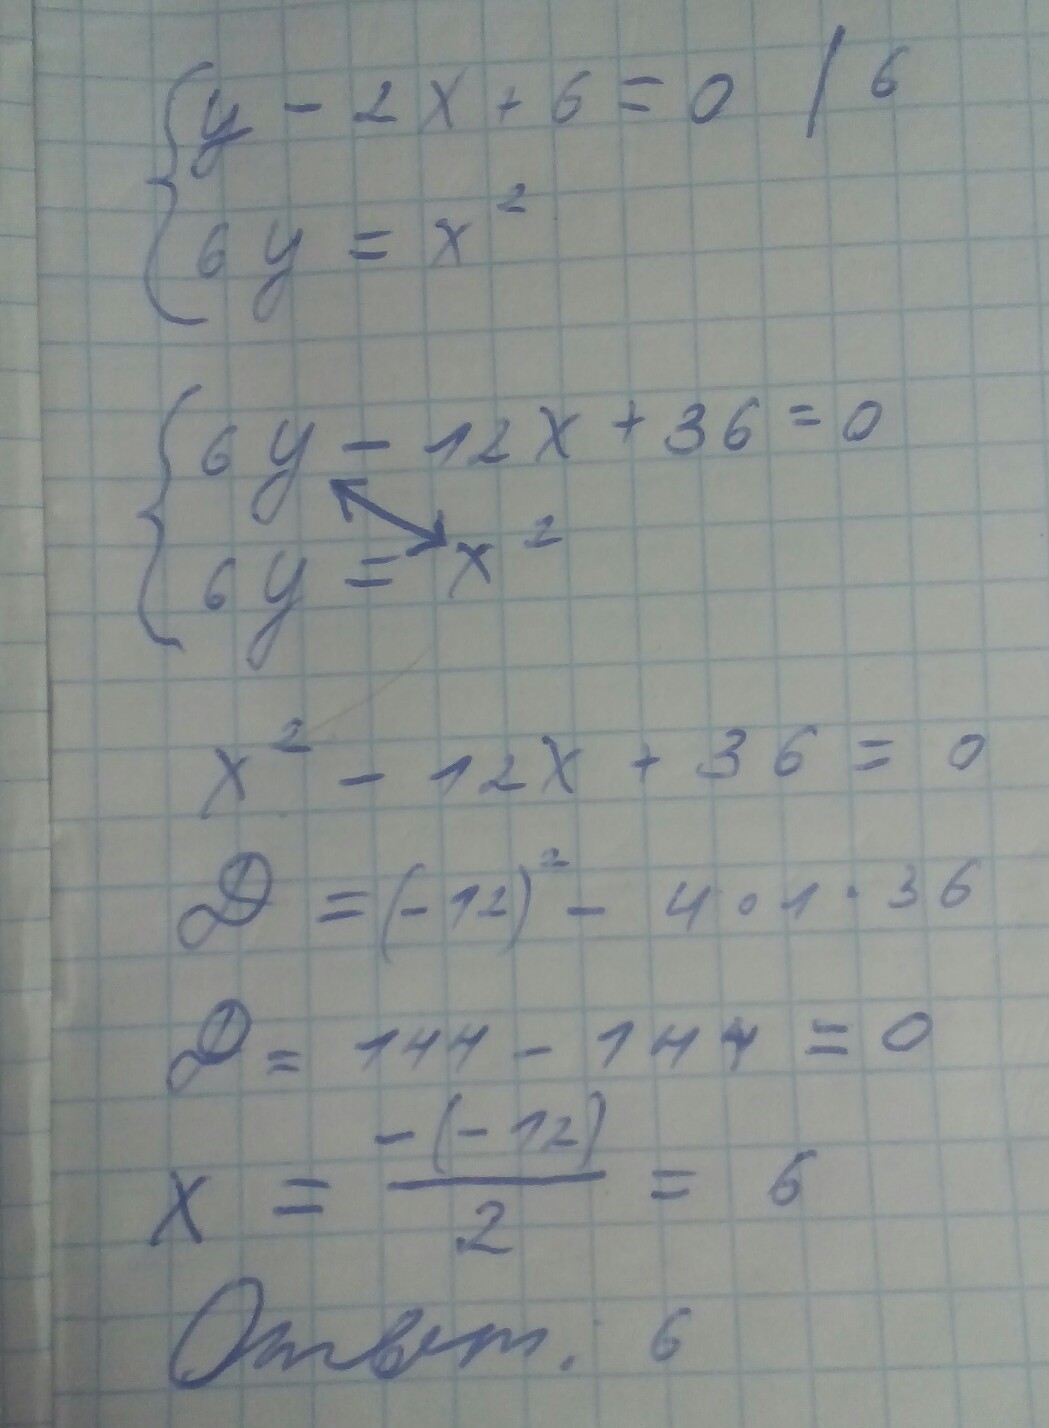 y - 2x + 6 = 0 / 6
6y = x²
6y - 12x + 36 = 0
6y = x²
x² - 12x + 36 = 0
D = (-12)² - 4 · 1 · 36
D = 144 - 144 = 0
x = -(-12)/2 = 6
Ответ. 6